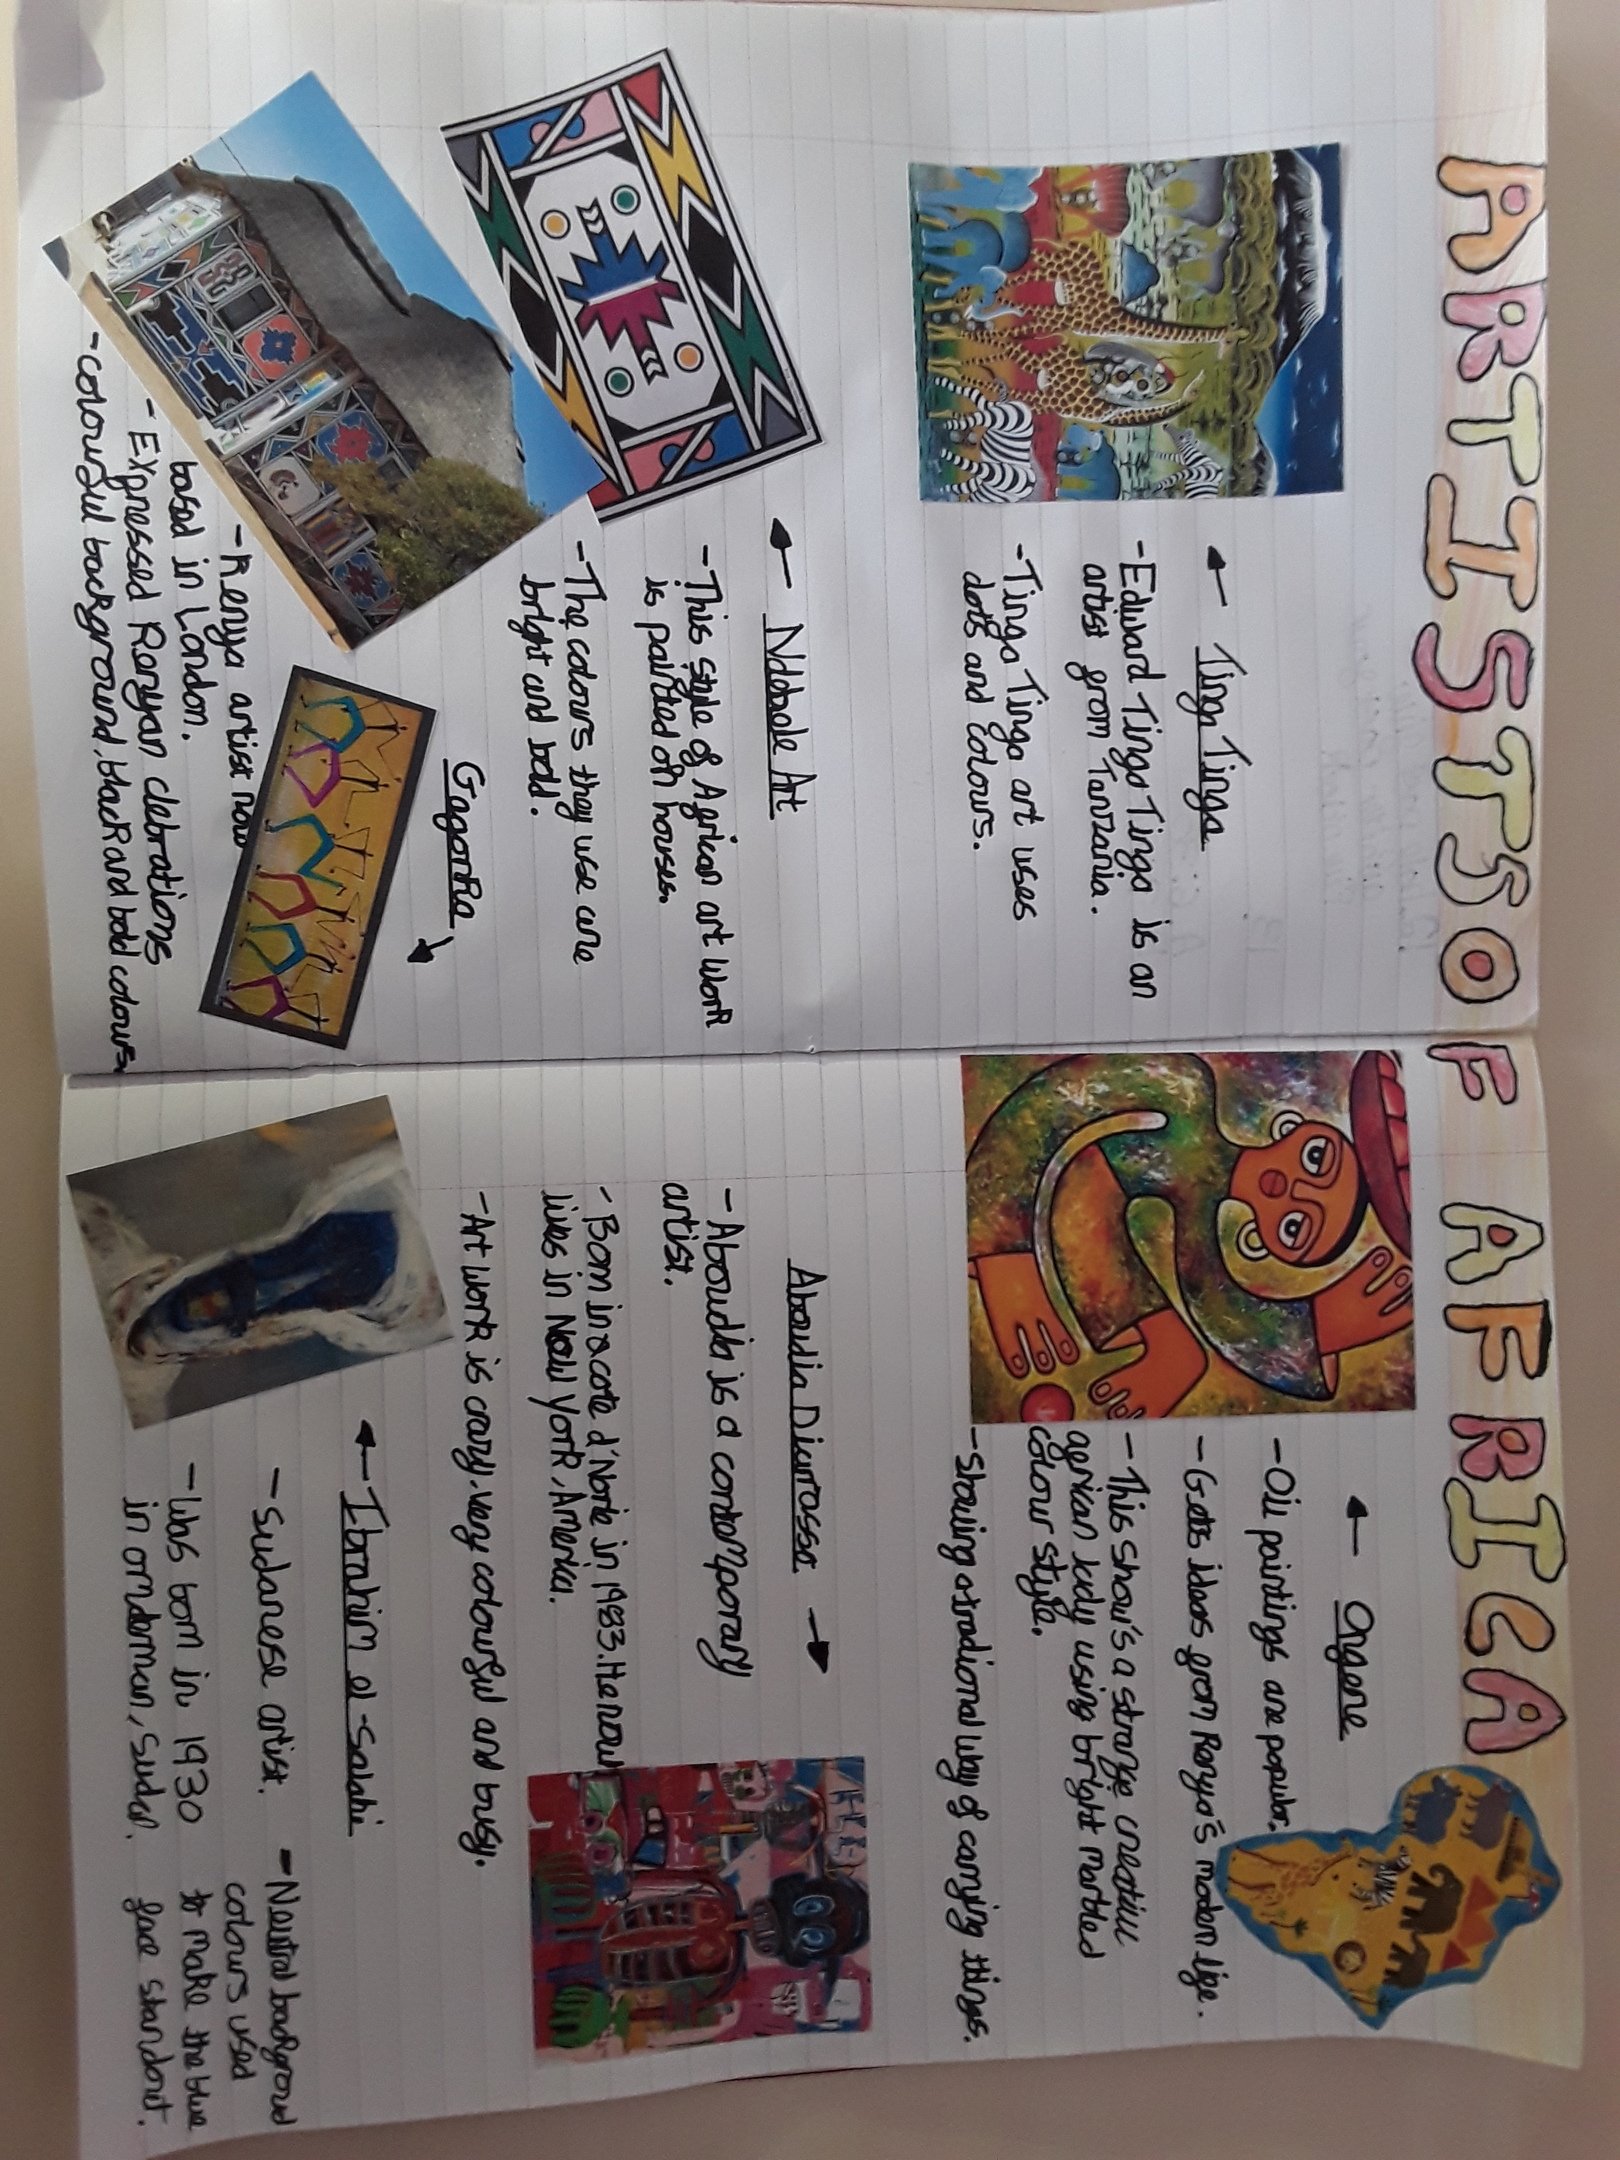 ARTISTS OF AFRICA
Tinga Tinga
- Edward Tinga Tinga is an
artist from Tanzania.
- Tinga Tinga art uses
dots and colours.
Ndbele Art
- This style of African art work
is painted on houses.
- The colours they use are
bright and bold.
Gagonka
- Kenya artist now
based in London.
- Expressed Kenyan clebrations
- colourful background, black and bold colours
Ongore
- Oil paintings are popular.
- Gets ideas from Kenya's modern life.
- This show's a strange creative
african lady using bright marbled
colour style.
- Showing a tradional way of carrying things.
Aboudia Diarrassa
- Aboudia is a contemporary
artist.
- Born in a cote d'Noria in 1983. He now
lives in New York, America.
- Art work is crazy, very colourful and busy.
Ibrahim el-Salahi
- Sudanese artist.
- Was born in 1930
in omderman, Sudan.
- Neutral background
colours used
to make the blue
face standout.